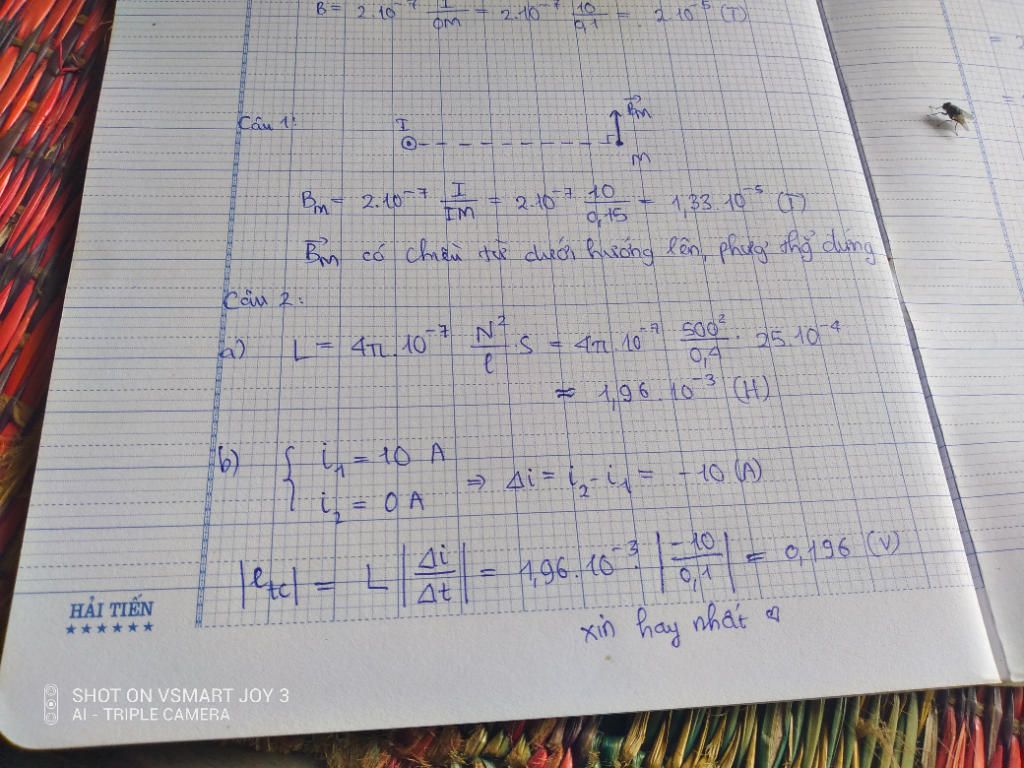 B = 2.10⁻⁷ I/OM = 2.10⁻⁷ 10/0,1 = 2.10⁻⁵ (T)
Câu 1:
I
B⃗m
M
Bm = 2.10⁻⁷ I/IM = 2.10⁻⁷ 10/0,15 = 1,33.10⁻⁵ (T)
B⃗m có chiều từ dưới hướng lên, phương thẳng đứng
Câu 2:
a) L = 4π.10⁻⁷ N²/l . S = 4π.10⁻⁷ 500²/0,4 . 25.10⁻⁴
≈ 1,96.10⁻³ (H)
b) { i₁ = 10 A
i₂ = 0 A ⇒ Δi = i₂ - i₁ = -10 (A)
|etc| = L |Δi/Δt| = 1,96.10⁻³ . |-10/0,1| = 0,196 (V)
xin hay nhất
HẢI TIẾN
SHOT ON VSMART JOY 3
AI - TRIPLE CAMERA